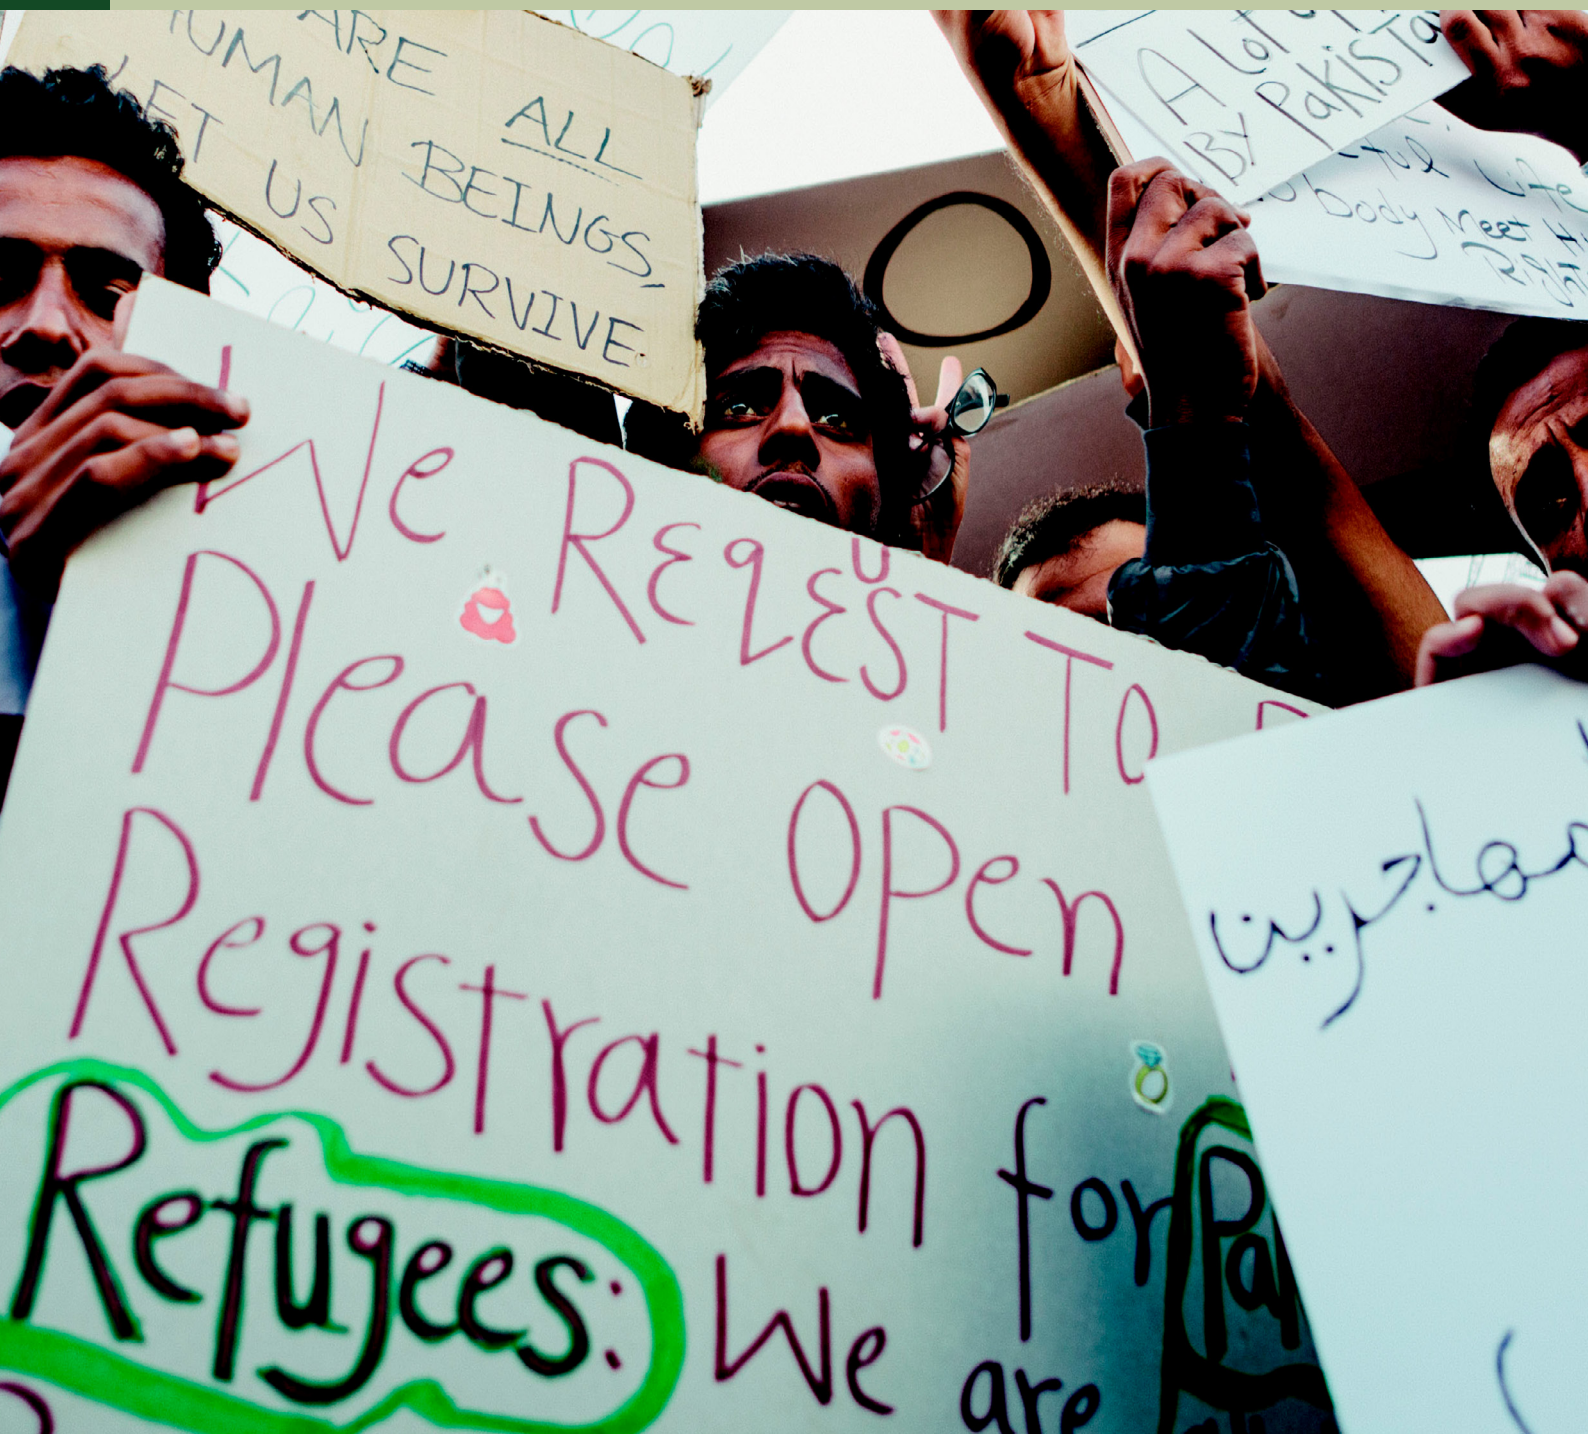 ARE ALL
HUMAN BEINGS.
LET US SURVIVE.
A Lot
BY PakisTa
Life
body Meet
Right
We REqUEST TO
Please open
Registration for Pak
Refugees: We are
مهاجرين